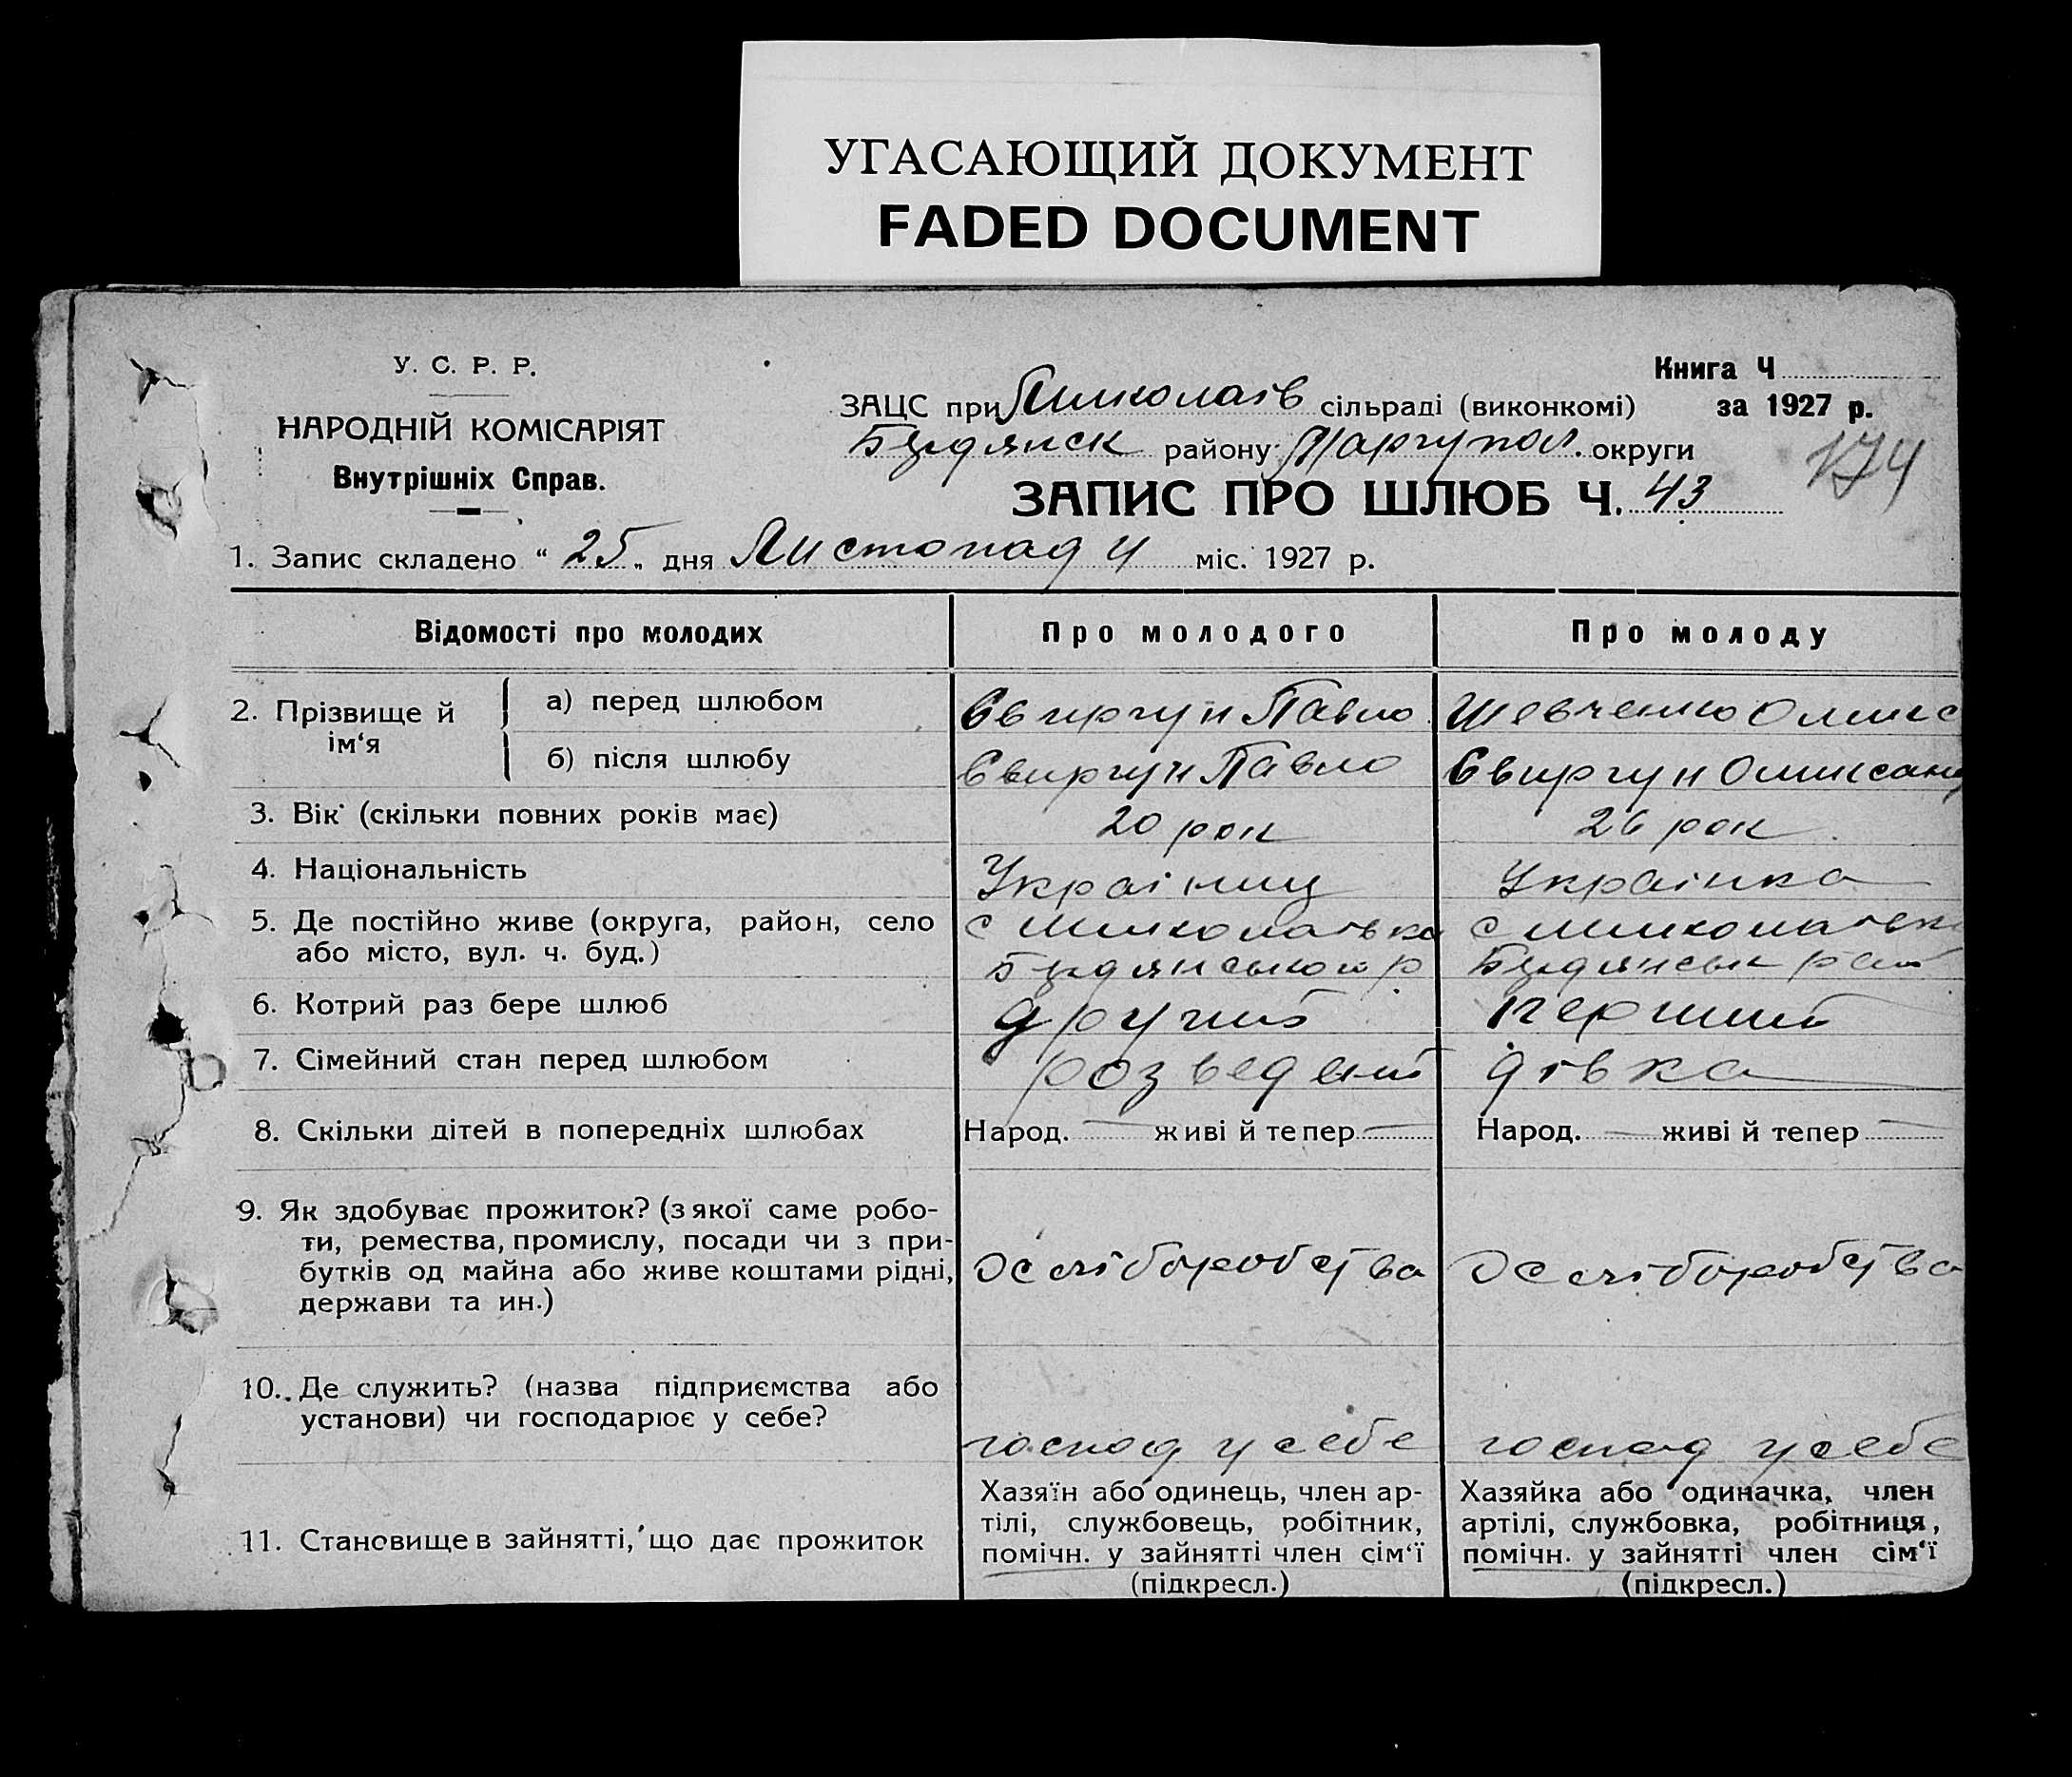 УГАСАЮЩИЙ ДОКУМЕНТ
FADED DOCUMENT
У. С. Р. Р.
НАРОДНІЙ КОМІСАРІЯТ
Внутрішніх Справ.
Книга Ч
ЗАЦС при Миколаїв сільраді (виконкомі) за 1927 р.
Будянск району Маріупол. округи
174
ЗАПИС ПРО ШЛЮБ Ч. 43
1. Запис складено “ 25 „ дня Листопаду міс. 1927 р.
Відомості про молодих Про молодого Про молоду
2. Прізвище й ім‘я
а) перед шлюбом Свиргун Павло Шевченко Олекс
б) після шлюбу Свиргун Павло Свиргун Олександ
3. Вік (скільки повних років має) 20 рок 26 рок
4. Національність Україниц Українка
5. Де постійно живе (округа, район, село с Миколаївка с Миколаївк
або місто, вул. ч. буд.) Будянського р Будянськ рай
6. Котрий раз бере шлюб другий перший
7. Сімейний стан перед шлюбом розведений дівка
8. Скільки дітей в попередніх шлюбах Народ. — живі й тепер — Народ. — живі й тепер —
9. Як здобуває прожиток? (з якої саме робо-
ти, ремества, промислу, посади чи з при-
бутків од майна або живе коштами рідні, хліборобства хліборобства
держави та ин.)
10. Де служить? (назва підприємства або
установи) чи господарює у себе? господ у себе господ у себе
11. Становище в зайнятті, що дає прожиток
Хазяїн або одинець, член ар-
тілі, службовець, робітник,
помічн. у зайнятті член сім‘ї
(підкресл.)
Хазяйка або одиначка, член
артілі, службовка, робітниця,
помічн. у зайнятті член сім‘ї
(підкресл.)